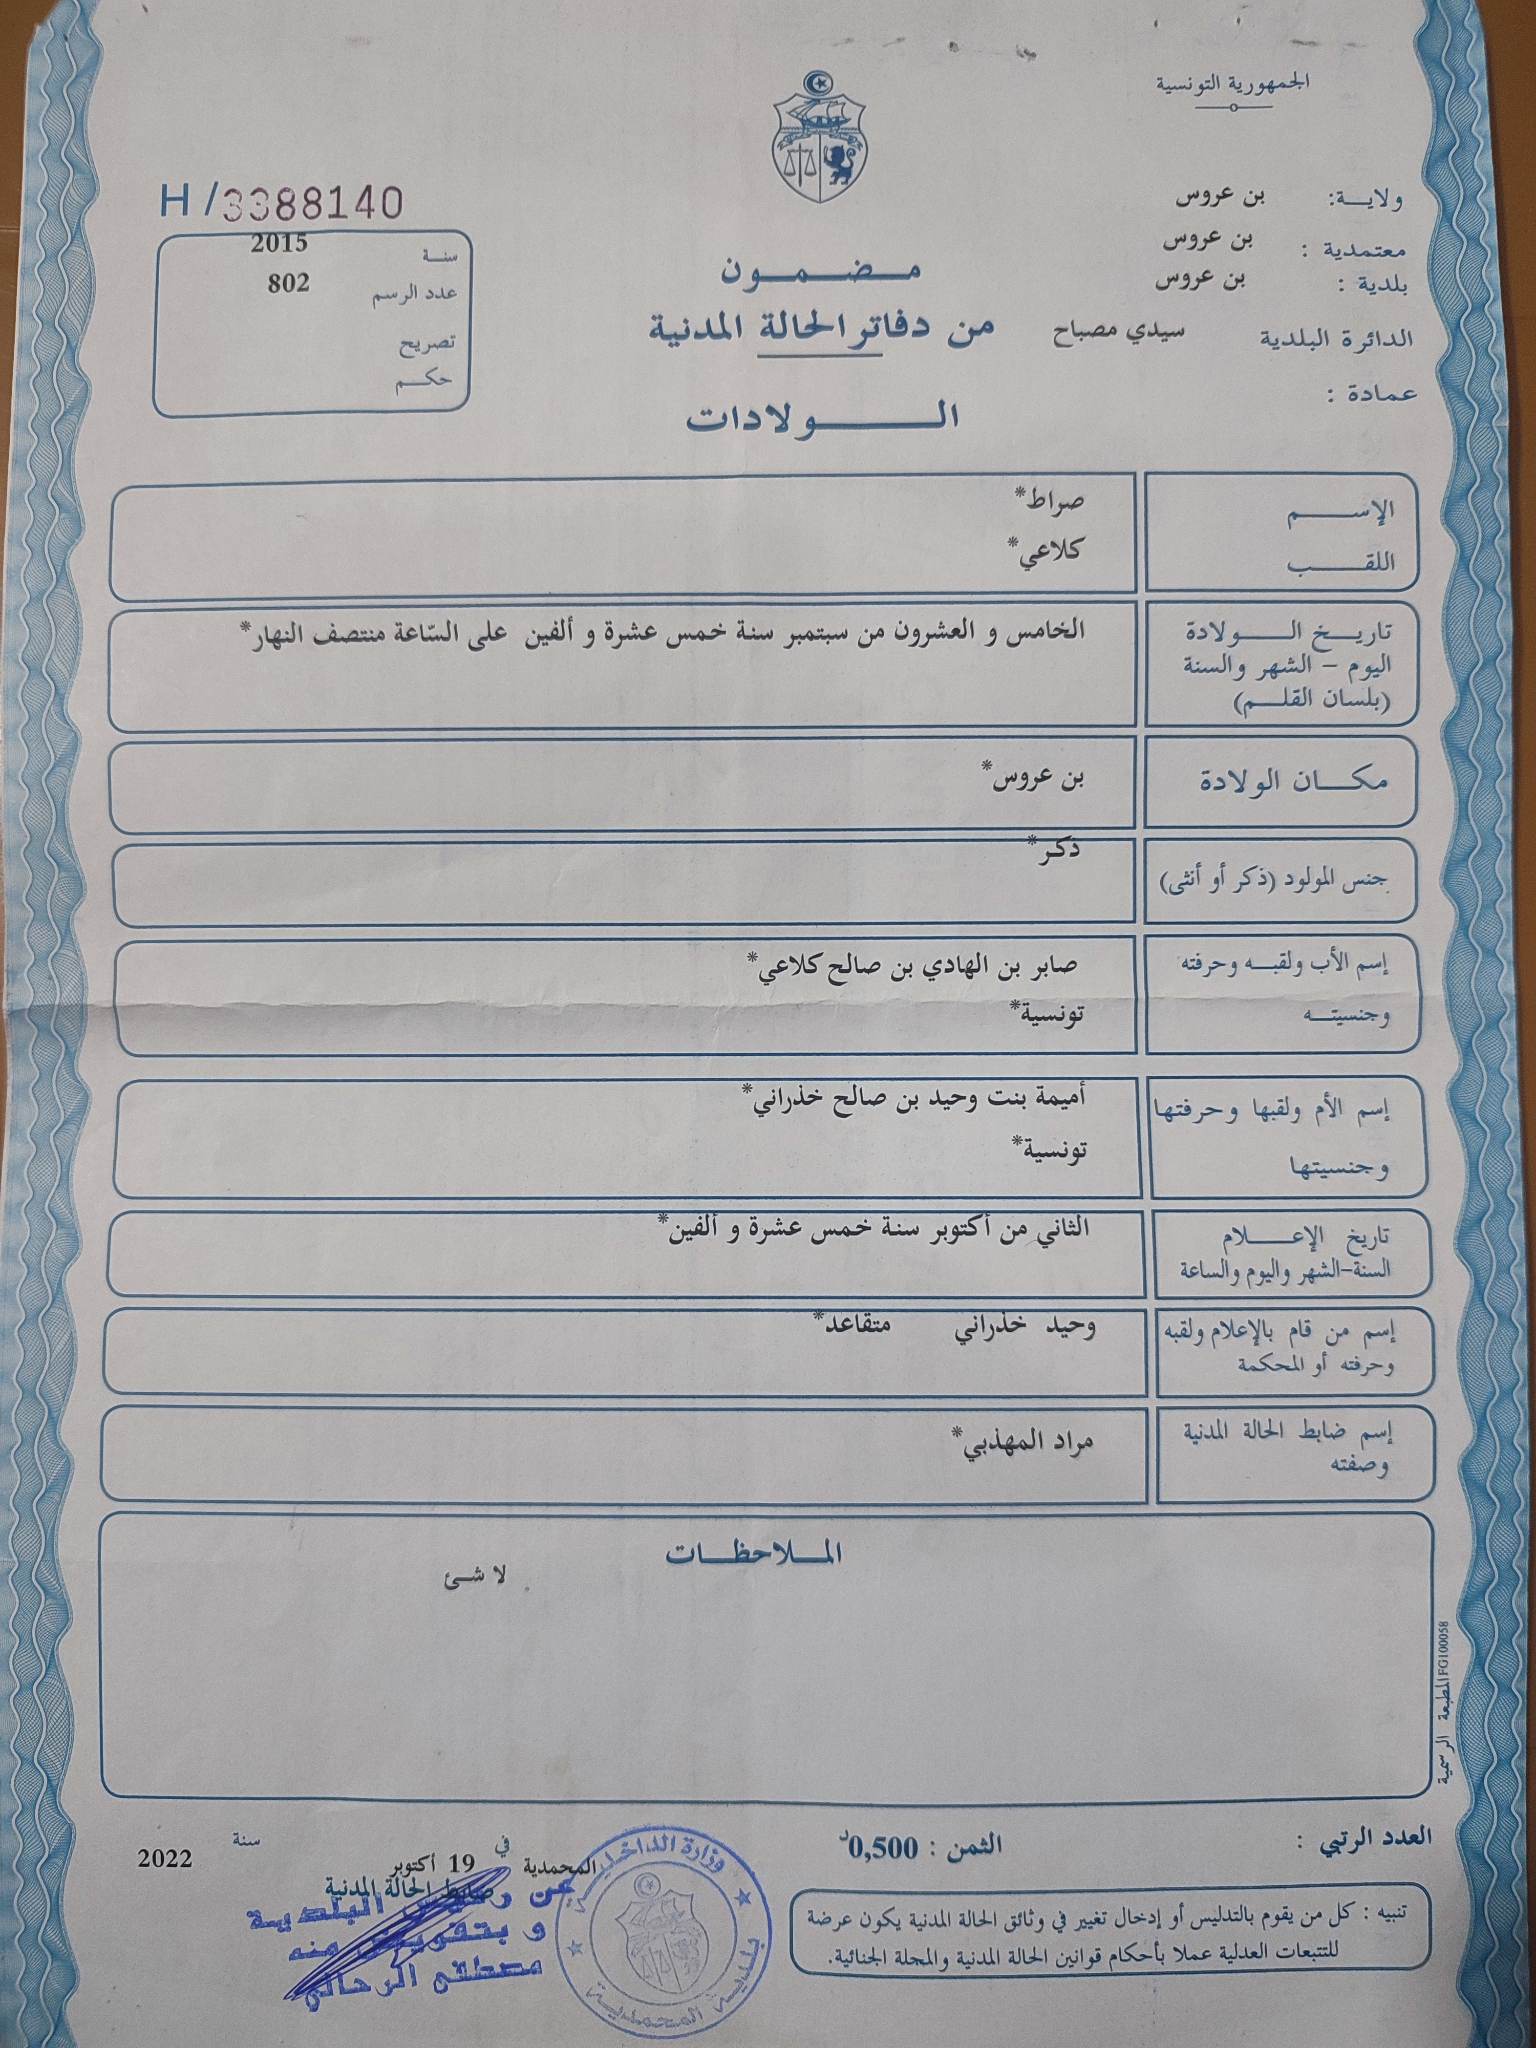 الجمهورية التونسية
ولايـــة: بن عروس
معتمدية : بن عروس
بلدية : بن عروس
الدائرة البلدية سيدي مصباح
عمادة :
H / 3388140
سنــة 2015
عدد الرسم 802
تصريح
حكـــم
مـضـمـــون
من دفاتر الحالة المدنية
الـــــولادات
الإســـــم صراط*
اللقـــــب كلاعي*
تاريـــخ الـــــولادة الخامس و العشرون من سبتمبر سنة خمس عشرة و ألفين على السّاعة منتصف النهار*
اليوم - الشهر والسنة
(بلسان القلـــم)
مكـــان الولادة بن عروس*
جنس المولود (ذكر أو أنثى) ذكر*
إسم الأب ولقبــه وحرفته صابر بن الهادي بن صالح كلاعي*
وجنسيتـــه تونسية*
إسم الأم ولقبها وحرفتها أميمة بنت وحيد بن صالح خذراني*
وجنسيتها تونسية*
تاريخ الإعـــــلام الثاني من أكتوبر سنة خمس عشرة و ألفين*
السنة-الشهر واليوم والساعة
إسم من قام بالإعلام ولقبه وحيد خذراني متقاعد*
وحرفته أو المحكمة
إسم ضابط الحالة المدنية مراد المهذبي*
وصفته
الملاحظـــات
لا شئ
المطبعة الرسمية FG100058
العدد الرتبي :
الثمن : 0,500 د
المحمدية في 19 أكتوبر سنة 2022
ضابط الحالة المدنية
عن رئيس البلدية
و بتفويض منه
مصطفى الرحالي
وزارة الداخلية
بلدية المحمدية
تنبيه : كل من يقوم بالتدليس أو إدخال تغيير في وثائق الحالة المدنية يكون عرضة
للتتبعات العدلية عملا بأحكام قوانين الحالة المدنية والمجلة الجنائية.